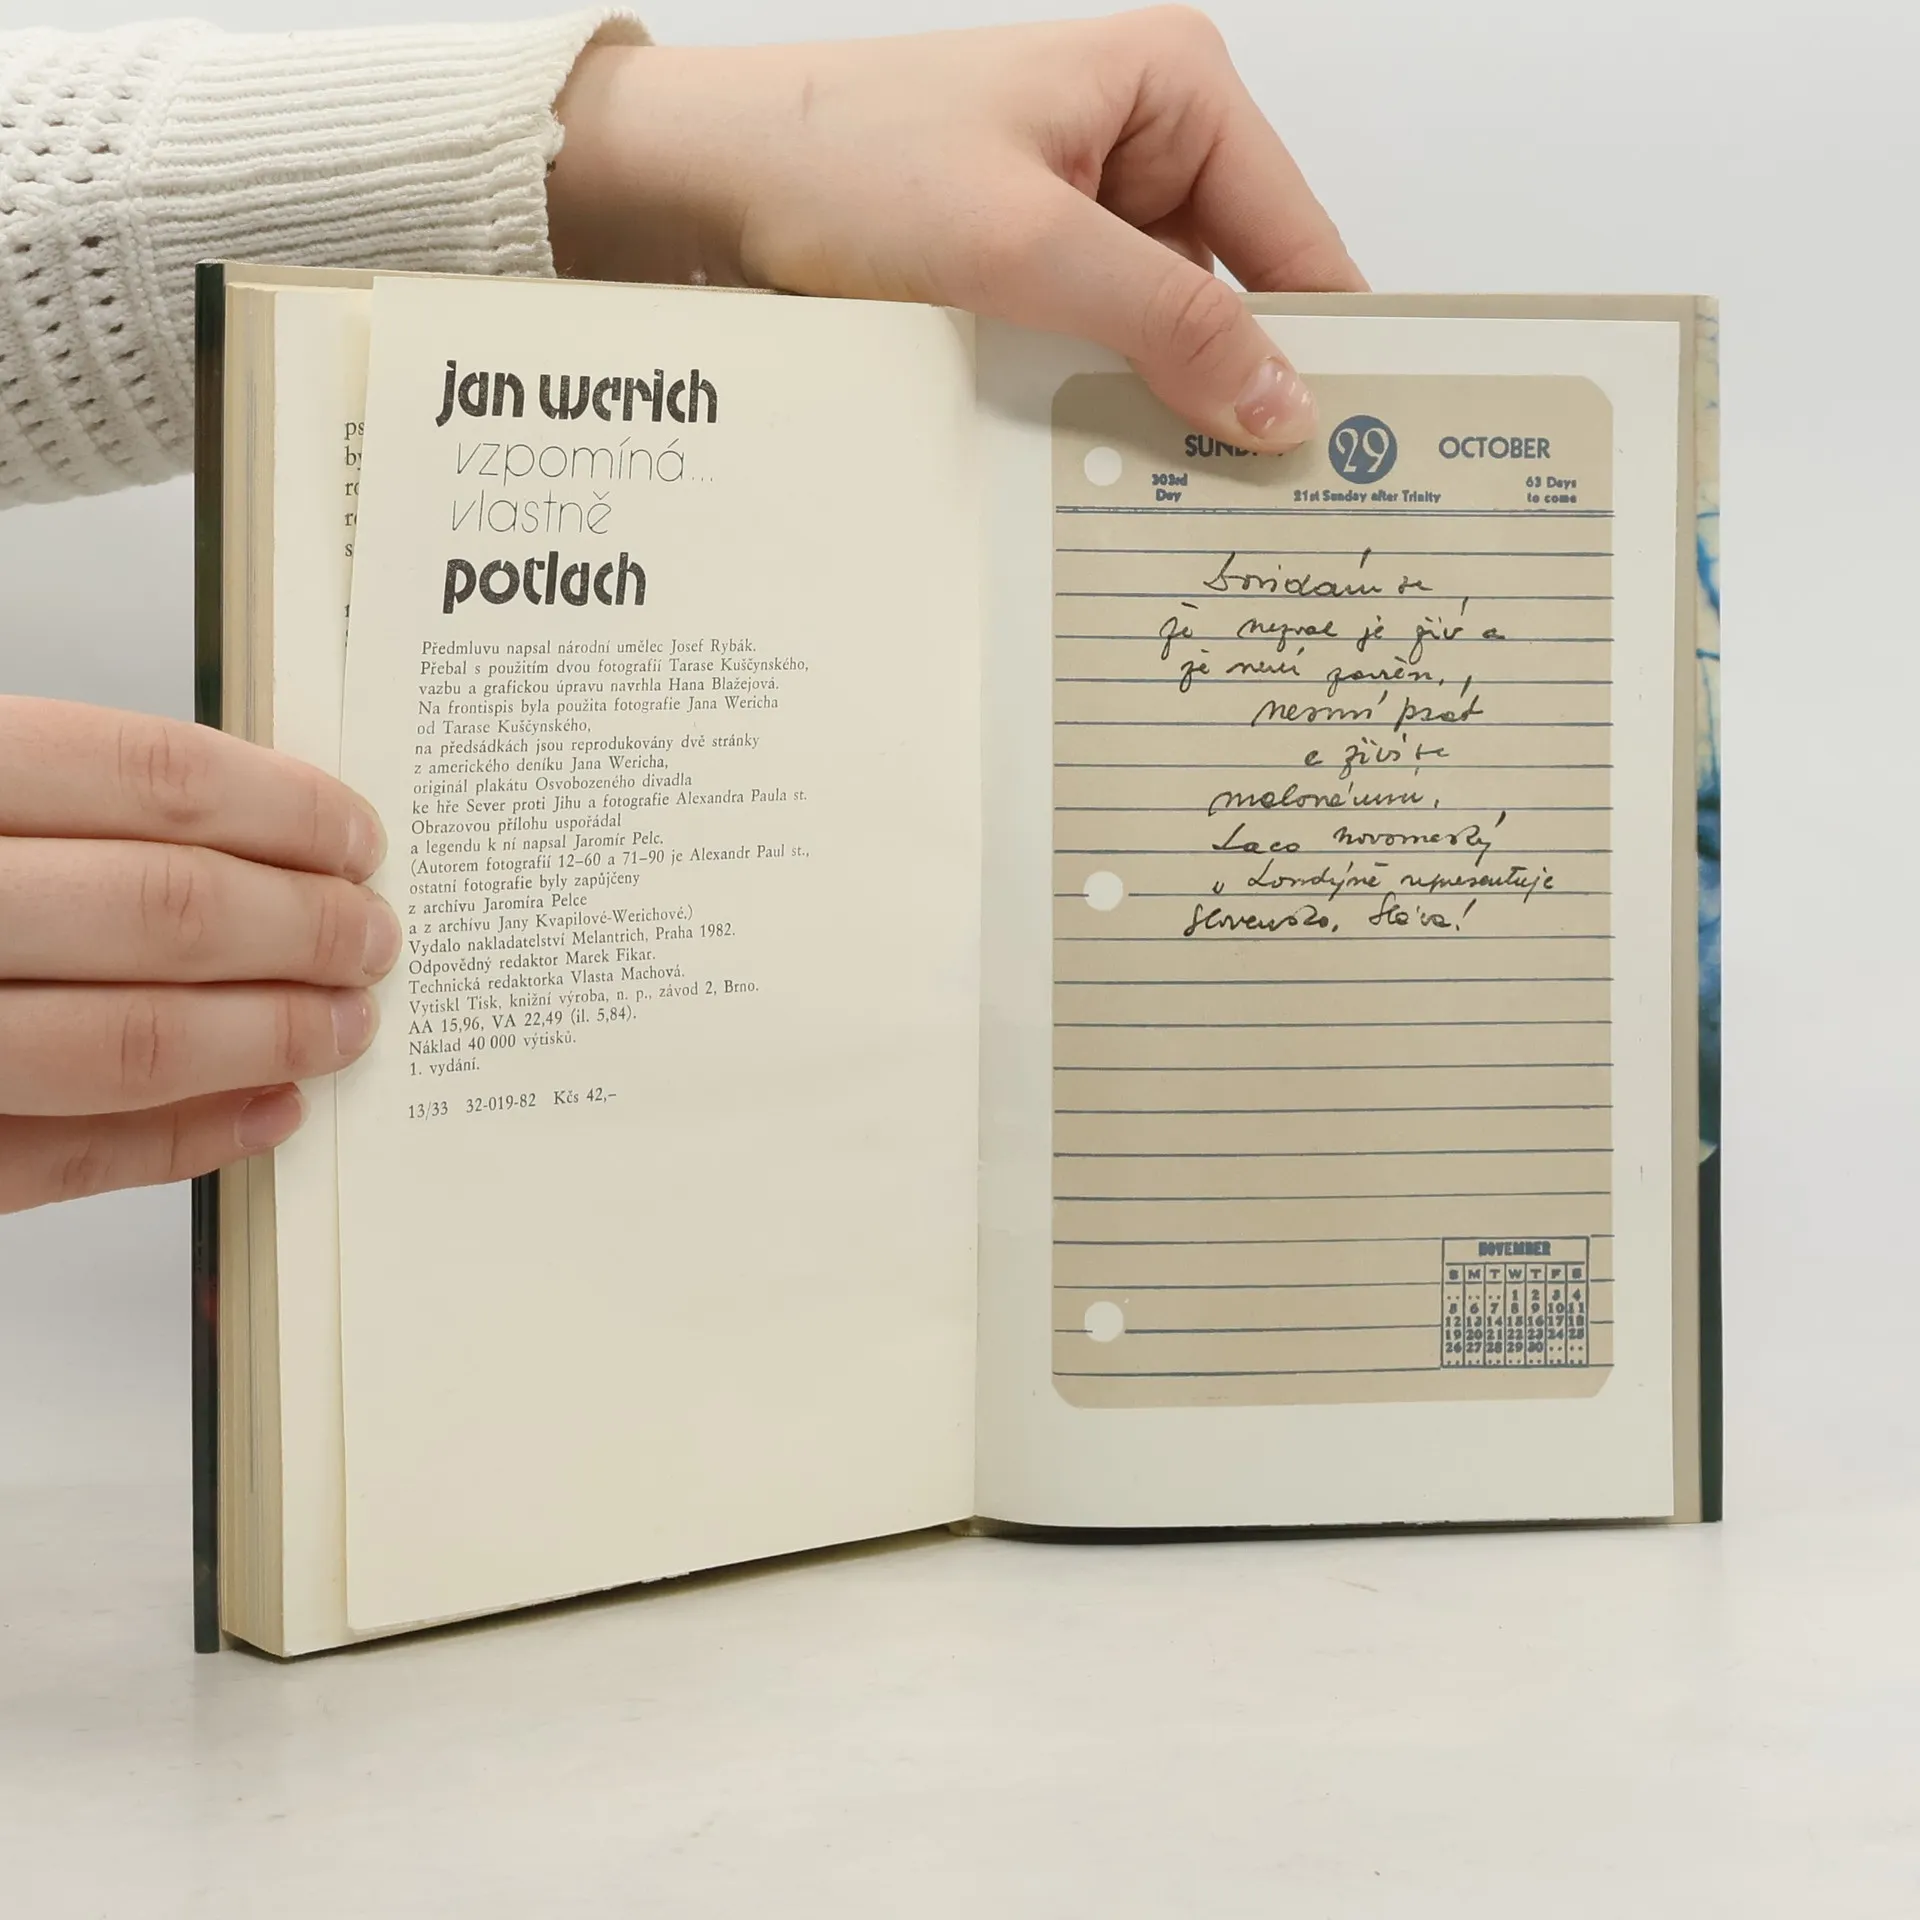 ps
by
jan werich
vzpomíná...
vlastně
potlach
Předmluvu napsal národní umělec Josef Rybák.
Přebal s použitím dvou fotografií Tarase Kuščynského,
vazbu a grafickou úpravu navrhla Hana Blažejová.
Na frontispis byla použita fotografie Jana Wericha
od Tarase Kuščynského,
na předsádkách jsou reprodukovány dvě stránky
z amerického deníku Jana Wericha,
originál plakátu Osvobozeného divadla
ke hře Sever proti Jihu a fotografie Alexandra Paula st.
Obrazovou přílohu uspořádal
a legendu k ní napsal Jaromír Pelc.
(Autorem fotografií 12–60 a 71–90 je Alexandr Paul st.,
ostatní fotografie byly zapůjčeny
z archívu Jaromíra Pelce
a z archívu Jany Kvapilové-Werichové.)
Vydalo nakladatelství Melantrich, Praha 1982.
Odpovědný redaktor Marek Fikar.
Technická redaktorka Vlasta Machová.
Vytiskl Tisk, knižní výroba, n. p., závod 2, Brno.
AA 15,96, VA 22,49 (il. 5,84).
Náklad 40 000 výtisků.
1. vydání.
13/33 32-019-82 Kčs 42,–
29 OCTOBER
303rd Day 21st Sunday after Trinity 63 Days to come
Dovídám se,
že nezval je živ a
že není zavřen,
nesmí psát
a živí se
Laco Novomeský
v Londýně representuje
Slovensko. Sláva!
NOVEMBER
S M T W T F S
.. .. .. 1 2 3 4
5 6 7 8 9 10 11
12 13 14 15 16 17 18
19 20 21 22 23 24 25
26 27 28 29 30 .. ..
.. .. .. .. .. .. ..